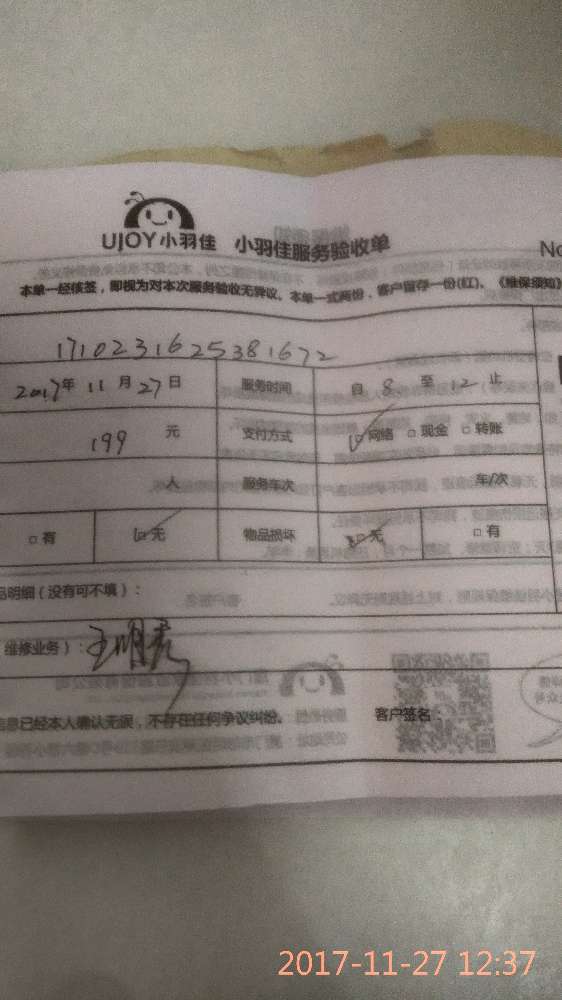 UJOY小羽佳 小羽佳服务验收单
No
本单一经核签，即视为对本次服务验收无异议。本单一式两份，客户留存一份(红)。《维保须知》
1710231625381672
2017年 11月 27日 服务时间 自 8 至 12 止
199 元 支付方式 ☑网络 □现金 □转账
人 服务车次 车/次
□有 ☑无 物品损坏 ☑无 □有
品明细（没有可不填）：
维修业务）：
信息已经本人确认无误，不存在任何争议纠纷。 客户签名
2017-11-27 12:37